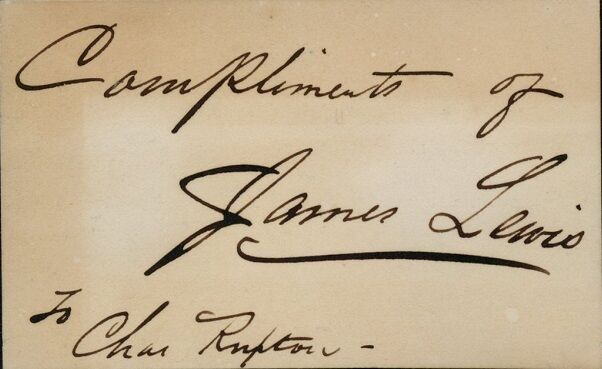 Compliments of
James Lewis
To
Chas Rupton -